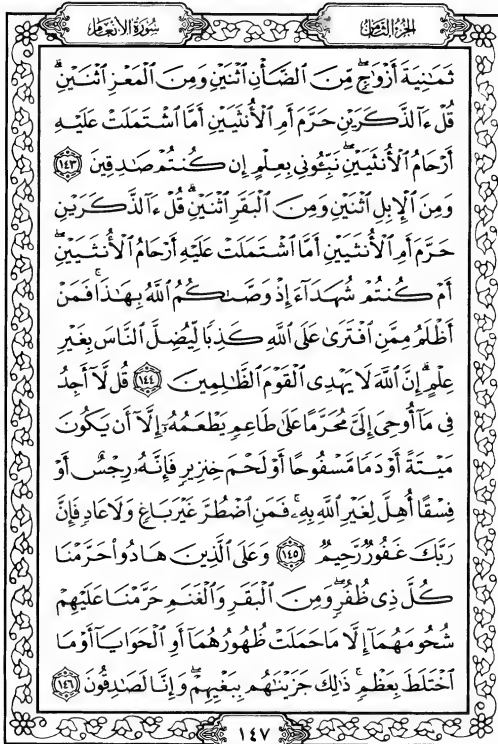 سُورَةُ الأَنْعَام
الجُزْءُ الثَّامِنُ
ثَمَٰنِيَةَ أَزْوَٰجٍۖ مِّنَ ٱلضَّأْنِ ٱثْنَيْنِ وَمِنَ ٱلْمَعْزِ ٱثْنَيْنِۗ
قُلْ ءَآلذَّكَرَيْنِ حَرَّمَ أَمِ ٱلْأُنثَيَيْنِ أَمَّا ٱشْتَمَلَتْ عَلَيْهِ
أَرْحَامُ ٱلْأُنثَيَيْنِۖ نَبِّـُٔونِى بِعِلْمٍ إِن كُنتُمْ صَٰدِقِينَ ١٤٣
وَمِنَ ٱلْإِبِلِ ٱثْنَيْنِ وَمِنَ ٱلْبَقَرِ ٱثْنَيْنِۗ قُلْ ءَآلذَّكَرَيْنِ
حَرَّمَ أَمِ ٱلْأُنثَيَيْنِ أَمَّا ٱشْتَمَلَتْ عَلَيْهِ أَرْحَامُ ٱلْأُنثَيَيْنِۖ
أَمْ كُنتُمْ شُهَدَآءَ إِذْ وَصَّىٰكُمُ ٱللَّهُ بِهَٰذَاۚ فَمَنْ
أَظْلَمُ مِمَّنِ ٱفْتَرَىٰ عَلَى ٱللَّهِ كَذِبًا لِّيُضِلَّ ٱلنَّاسَ بِغَيْرِ
عِلْمٍۗ إِنَّ ٱللَّهَ لَا يَهْدِى ٱلْقَوْمَ ٱلظَّٰلِمِينَ ١٤٤ قُل لَّآ أَجِدُ
فِى مَآ أُوحِىَ إِلَىَّ مُحَرَّمًا عَلَىٰ طَاعِمٍ يَطْعَمُهُۥٓ إِلَّآ أَن يَكُونَ
مَيْتَةً أَوْ دَمًا مَّسْفُوحًا أَوْ لَحْمَ خِنزِيرٍ فَإِنَّهُۥ رِجْسٌ أَوْ
فِسْقًا أُهِلَّ لِغَيْرِ ٱللَّهِ بِهِۦۚ فَمَنِ ٱضْطُرَّ غَيْرَ بَاغٍ وَلَا عَادٍ فَإِنَّ
رَبَّكَ غَفُورٌ رَّحِيمٌ ١٤٥ وَعَلَى ٱلَّذِينَ هَادُوا۟ حَرَّمْنَا
كُلَّ ذِى ظُفُرٍۖ وَمِنَ ٱلْبَقَرِ وَٱلْغَنَمِ حَرَّمْنَا عَلَيْهِمْ
شُحُومَهُمَآ إِلَّا مَا حَمَلَتْ ظُهُورُهُمَآ أَوِ ٱلْحَوَايَآ أَوْ مَا
ٱخْتَلَطَ بِعَظْمٍۚ ذَٰلِكَ جَزَيْنَٰهُم بِبَغْيِهِمْۖ وَإِنَّا لَصَٰدِقُونَ ١٤٦
١٤٧